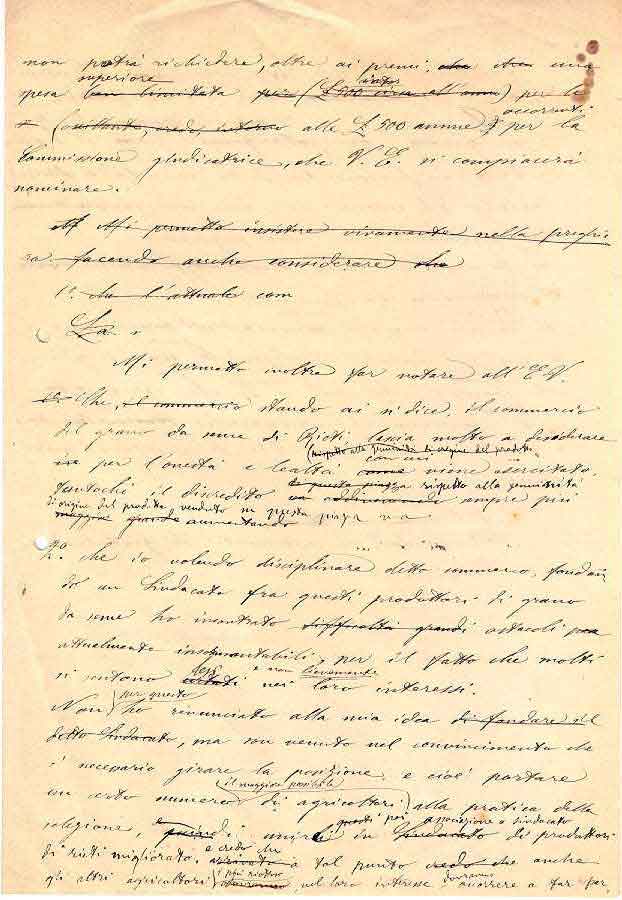 non potrà richiedere, oltre ai premi, che una
superiore
spesa ben limitata per (£ 500 circa all'anno) per le
occorrenti
alle £ 500 annue, per la
Commissione giudicatrice, che V. E. si compiacerà
nominare.
Mi permetto insistere vivamente nella preghie
ra facendo anche considerare che
1º che l'attuale com
La
Mi permetto inoltre far notare all'E. V.
1º Che, il commercio stando ai si dice, il commercio
del grano da seme di Rieti lascia molto a desiderare
(rispetto alla genuinità di origine del prodotto
per l'onestà e lealtà con cui viene esercitato,
e questa piazza rispetto alla genuinità
tantochè il discredito va sempre più
di origine del prodotto venduto in questa piazza va
aumentando
2º che io volendo disciplinare detto commercio, fondan
do un Sindacato fra questi produttori di grano
da seme ho incontrato difficoltà grandi ostacoli
attualmente insormontabili, per il fatto che molti
lesi e non lievemente
si sentono nei loro interessi.
per questo
Non ho rinunciato alla mia idea di fondare il
detto Sindacato, ma son venuto nel convincimento che
è necessario girare la posizione, e cioè portare
il maggior possibile
un certo numero di agricoltori alla pratica della
questi poi
selezione, unirli in Sindacato di produttori
e credo che
di rieti migliorato, a tal punto credo che anche
gli altri agricoltori nel loro interesse dovranno accorrere a far per